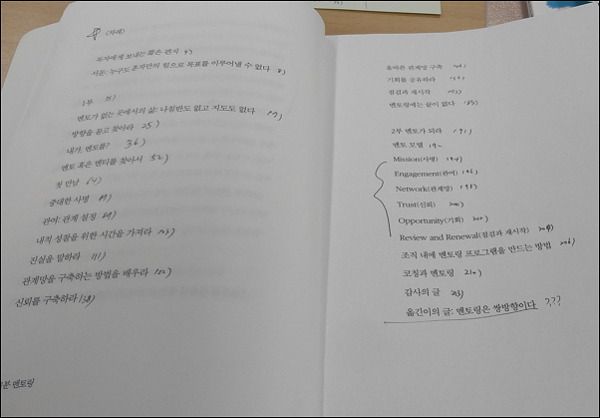 <차례>
독자에게 보내는 짧은 편지
서문: 누구도 혼자만의 힘으로 목표를 이루어낼 수 없다 8)
1부
멘토가 없는 곳에서의 삶: 나침반도 없고 지도도 없다 17)
방향을 묻고 찾아라 25)
내가, 멘토를? 36)
멘토 혹은 멘티를 찾아서 52)
첫 만남
중대한 사명
관여: 관계 설정
내적 성찰을 위한 시간을 가져라
진실을 말하라 111)
관계망을 구축하는 방법을 배우라 122)
신뢰를 구축하라 138)
분 멘토링
올바른 관계망 구축
기회를 공유하라
점검과 재시작
멘토링에는 끝이 없다
2부 멘토가 되라 191)
멘토 모델
Mission(사명)
Engagement(관여)
Network(관계망)
Trust(신뢰)
Opportunity(기회)
Review and Renewal(점검과 재시작)
조직 내에 멘토링 프로그램을 만드는 방법
코칭과 멘토링
감사의 글
옮긴이의 글: 멘토링은 쌍방향이다 ???